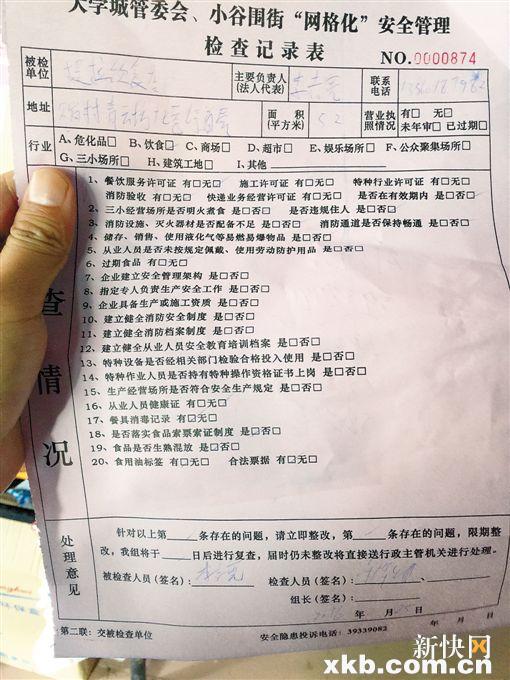 大学城管委会、小谷围街“网格化”安全管理
检查记录表 NO.0000874
被检单位 主要负责人(法人代表) 联系电话
地址 面积(平方米) 52 营业执照情况 有□ 无□ 未年审□ 已过期□
行业 A、危化品□ B、饮食□ C、商场□ D、超市□ E、娱乐场所□ F、公众聚集场所□
G、三小场所□ H、建筑工地□ I、其他
查情况
1、餐饮服务许可证 有□无□ 施工许可证 有□无□ 特种行业许可证 有□无□
消防验收 有□无□ 快递业务经营许可证 有□无□ 是否在有效期内 是□否□
2、三小经营场所是否明火煮食 是□否□ 是否违规住人 是□否□
3、消防设施、灭火器材是否配备不足 是□否□ 消防通道是否保持畅通 是□否□
4、储存、销售、使用液化气等易燃易爆物品 是□否□
5、从业人员是否未按规定佩戴、使用劳动防护用品 是□否□
6、过期食品 有□无□
7、企业建立安全管理架构 是□否□
8、指定专人负责生产安全工作 是□否□
9、企业具备生产或施工资质 是□否□
10、建立健全消防安全制度 是□否□
11、建立健全消防档案制度 是□否□
12、建立健全从业人员安全教育培训档案 是□否□
13、特种设备是否经相关部门检验合格投入使用 是□否□
14、特种作业人员是否持有特种操作资格证书上岗 是□否□
15、生产经营场所是否符合安全生产规定 是□否□
16、从业人员健康证 有□无□
17、餐具消毒记录 有□无□
18、是否落实食品索票索证制度 是□否□
19、食品是否生熟混放 是□否□
20、食用油标签 有□无□ 合法票据 有□无□
处理意见
针对以上第 条存在的问题，请立即整改，第 条存在的问题，限期整
改，我组将于 日后进行复查，届时仍未整改将直接送行政主管机关进行处理。
被检查人员(签名)： 检查人员(签名)： 、
组长(签名)：
年 月 日
第二联：交被检查单位 安全隐患投诉电话：39339082
新快网
xkb.com.cn